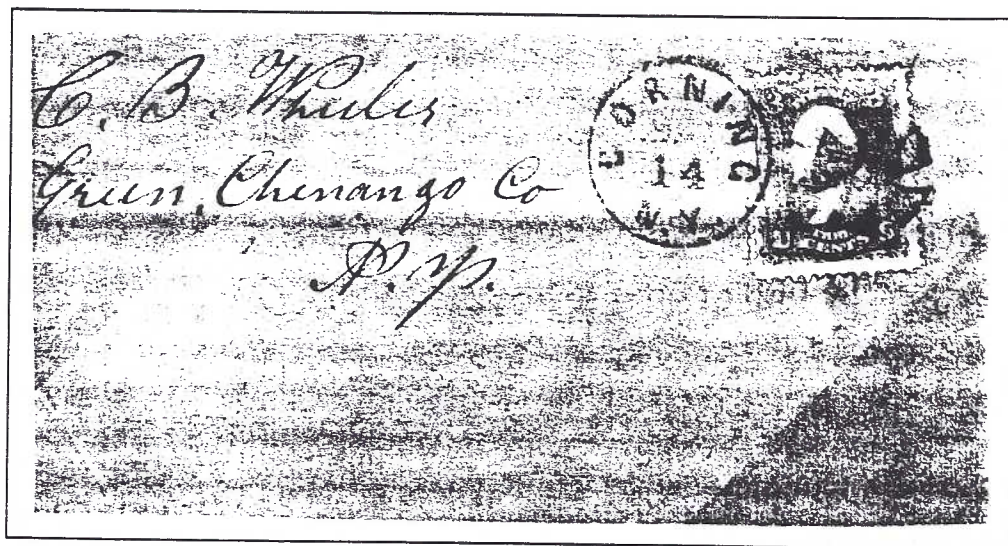 C. B. Wheeler
Green, Chenango Co
N. Y.
CORNING
14
N.Y.
U S
CENTS